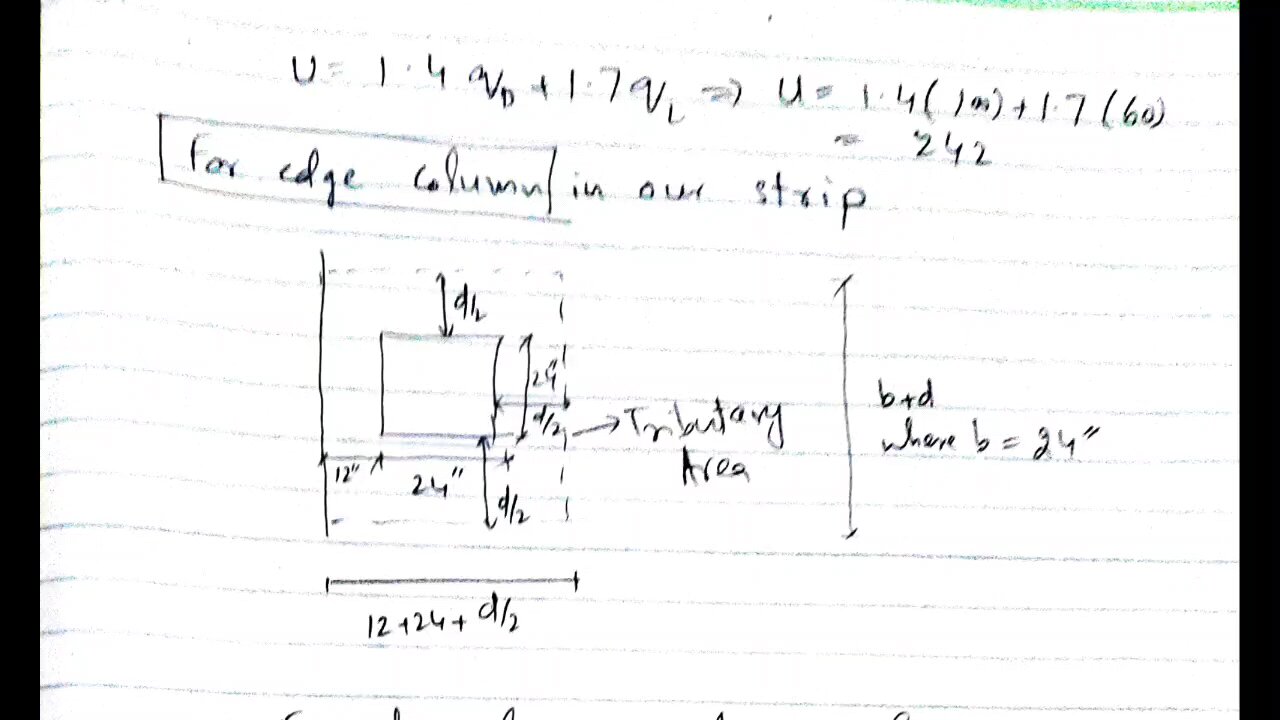 U = 1.4 qD + 1.7 qL ⇒ U = 1.4(100) + 1.7(60)
= 242
For edge column in our strip
d/2
24"
d/2
→ Tributary
Area
b+d
where b = 24"
12"
24"
d/2
12+24+d/2